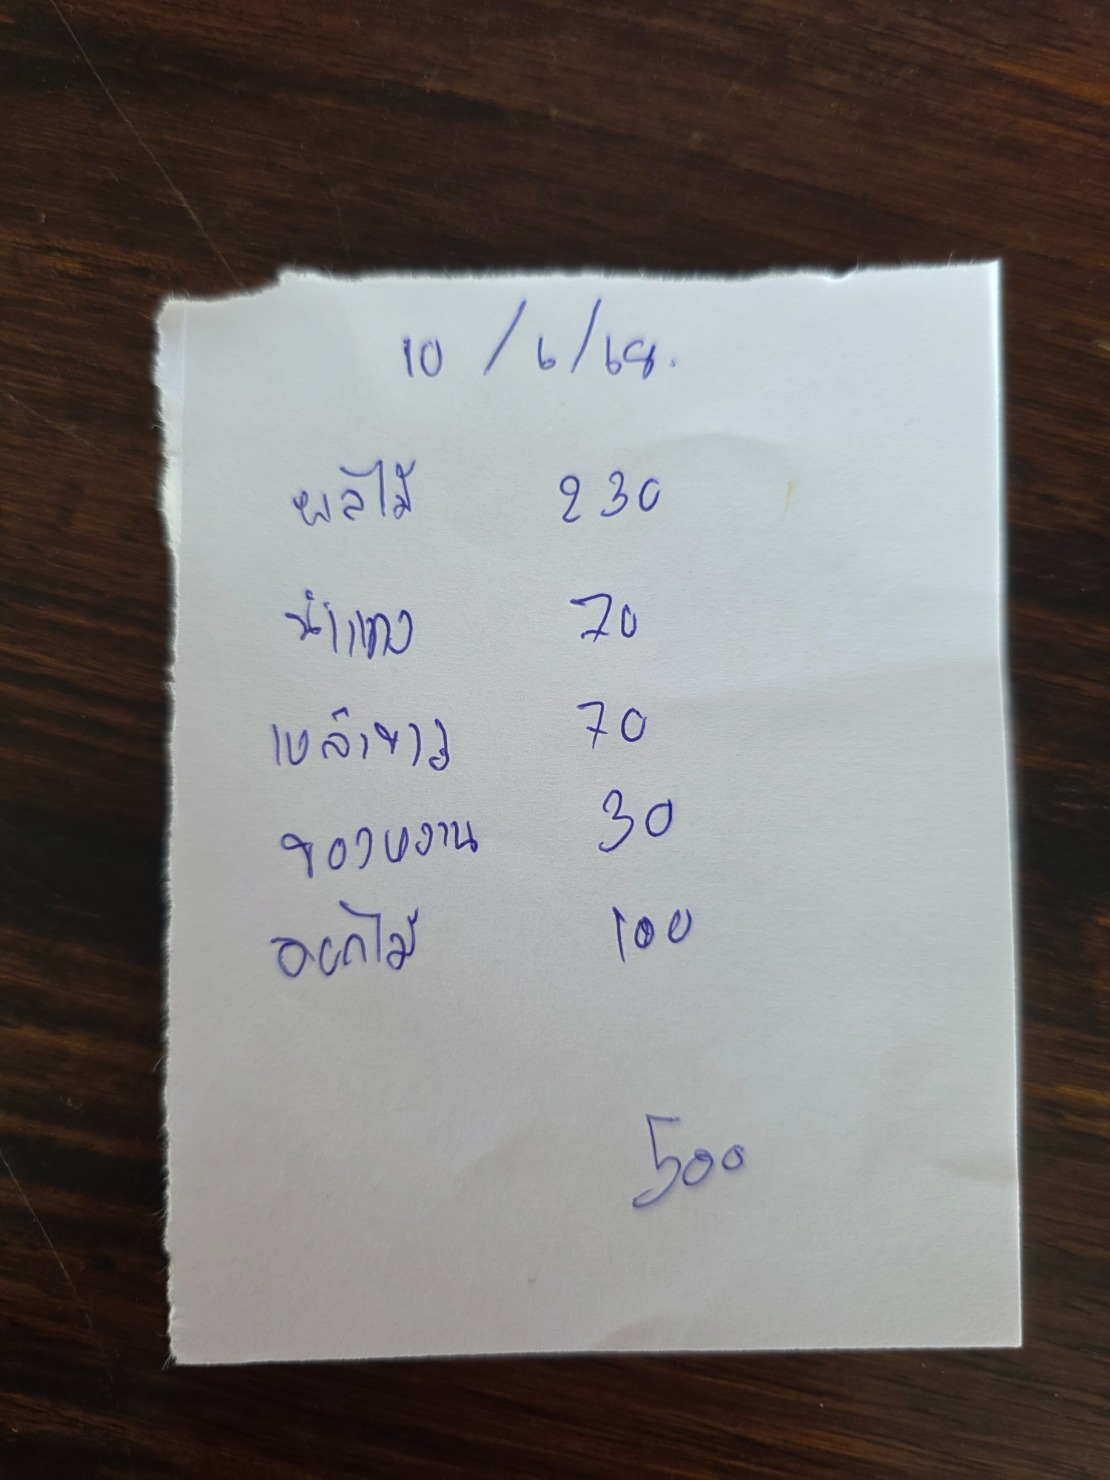 10 / 6 / 68.
ผลไม้ 230
น้ำแดง 70
เหล้าขาว 70
ของหวาน 30
ดอกไม้ 100
500